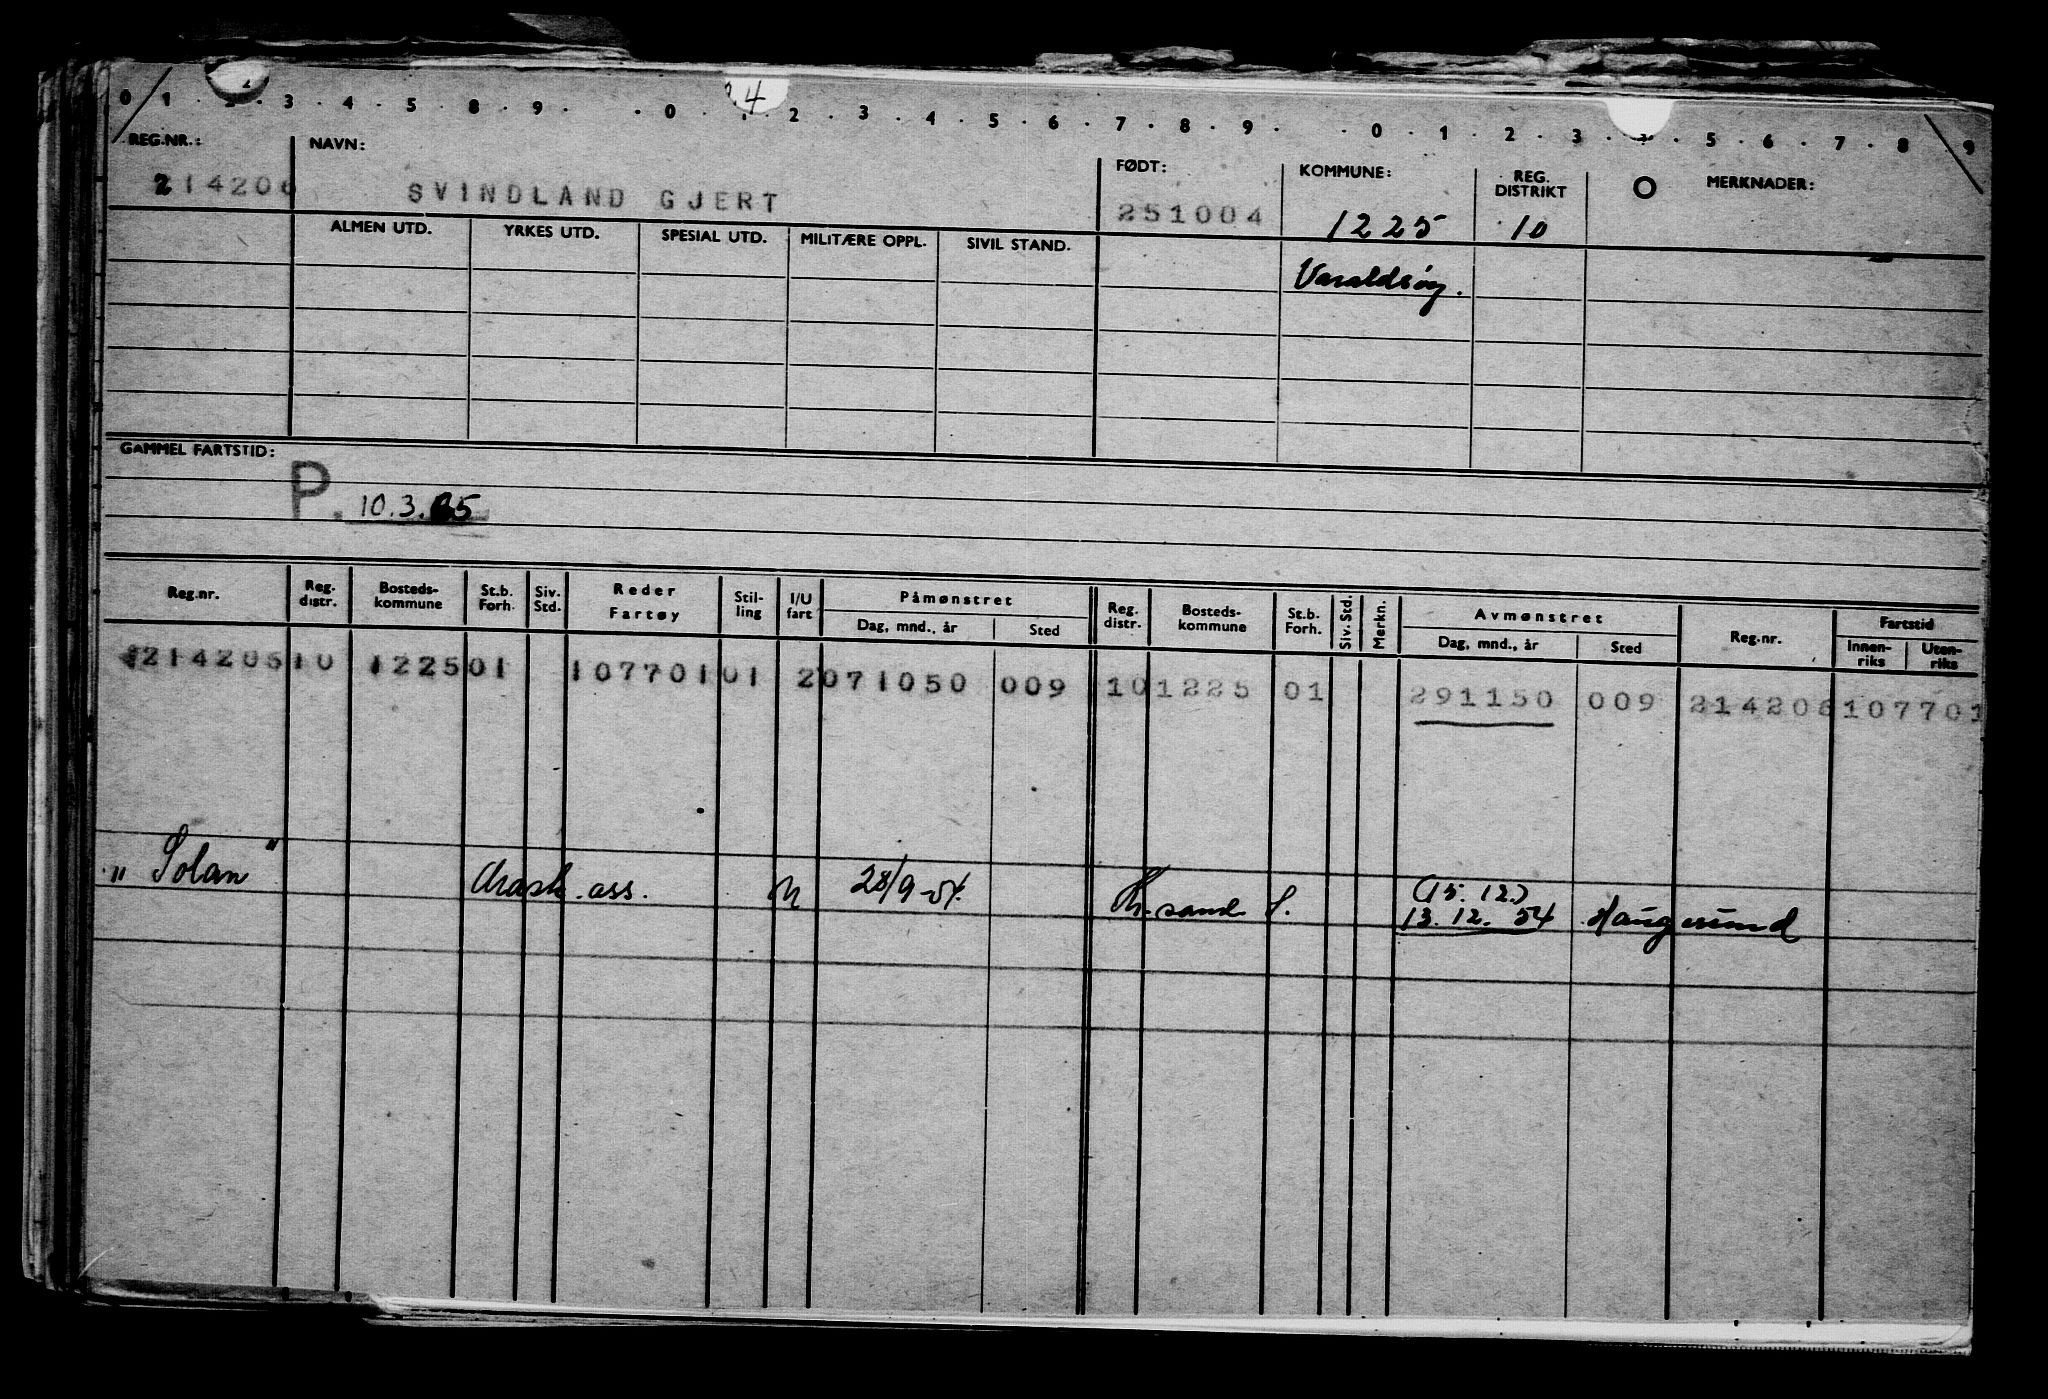 0 1 . 2 . 3 . 4 . 5 . 8 . 9 . . 0 . 2 . 3 . 4 . 5 . 6 . 7 . 8 . 9 . . 0 . 1 . 2 . 3 . 5 . 6 . 7 . 8 . 9
4
REG.NR.: NAVN: FØDT: KOMMUNE: REG. DISTRIKT MERKNADER:
214206 SVINDLAND GJERT 251004 1225 10
ALMEN UTD. YRKES UTD. SPESIAL UTD. MILITÆRE OPPL. SIVIL STAND.
Varaldsøy.
GAMMEL FARTSTID:
P. 10.3.65
Reg.nr. Reg. distr. Bosteds-kommune St.b. Forh. Siv. Std. Reder Fartøy Stil-ling I/U fart Påmønstret Dag, mnd., år Sted Reg. distr. Bosteds-kommune St.b. Forh. Siv. Std. Merkn. Avmønstret Dag, mnd., år Sted Reg.nr. Fartstid Innen-riks Uten-riks
214206 10 1225 01 107701 01 2 071050 009 10 1225 01 291150 009 214206 107701
"Solan" Mask. ass. 28/9-54. Kr.sand S. (15.12.) 13.12.54 Haugesund